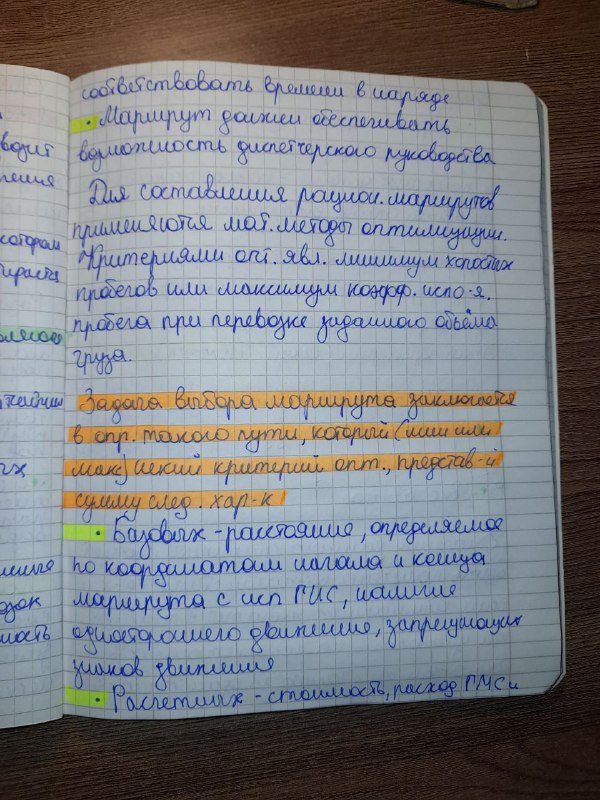 соответствовать времени в наряде
• Маршрут должен обеспечивать
возможность диспетчерского руководства
Для составления рацион. маршрутов
применяются мат. методы оптимизации.
Критериями опт. явл. минимум холостых
пробегов или максимум коэфф. испо-я.
пробега при перевозке заданного объёма
груза.
Задача выбора маршрута заключается
в опр. такого пути, который (мин или
мак) некий критерий опт., представ-й
сумму след. хар-к
• Базовых - расстояние, определяемое
по координатам начала и конца
маршрута с исп ГИС, наличие
одностороннего движения, запрещающих
знаков движения
• Расчетных - стоимость, расход ГМС и